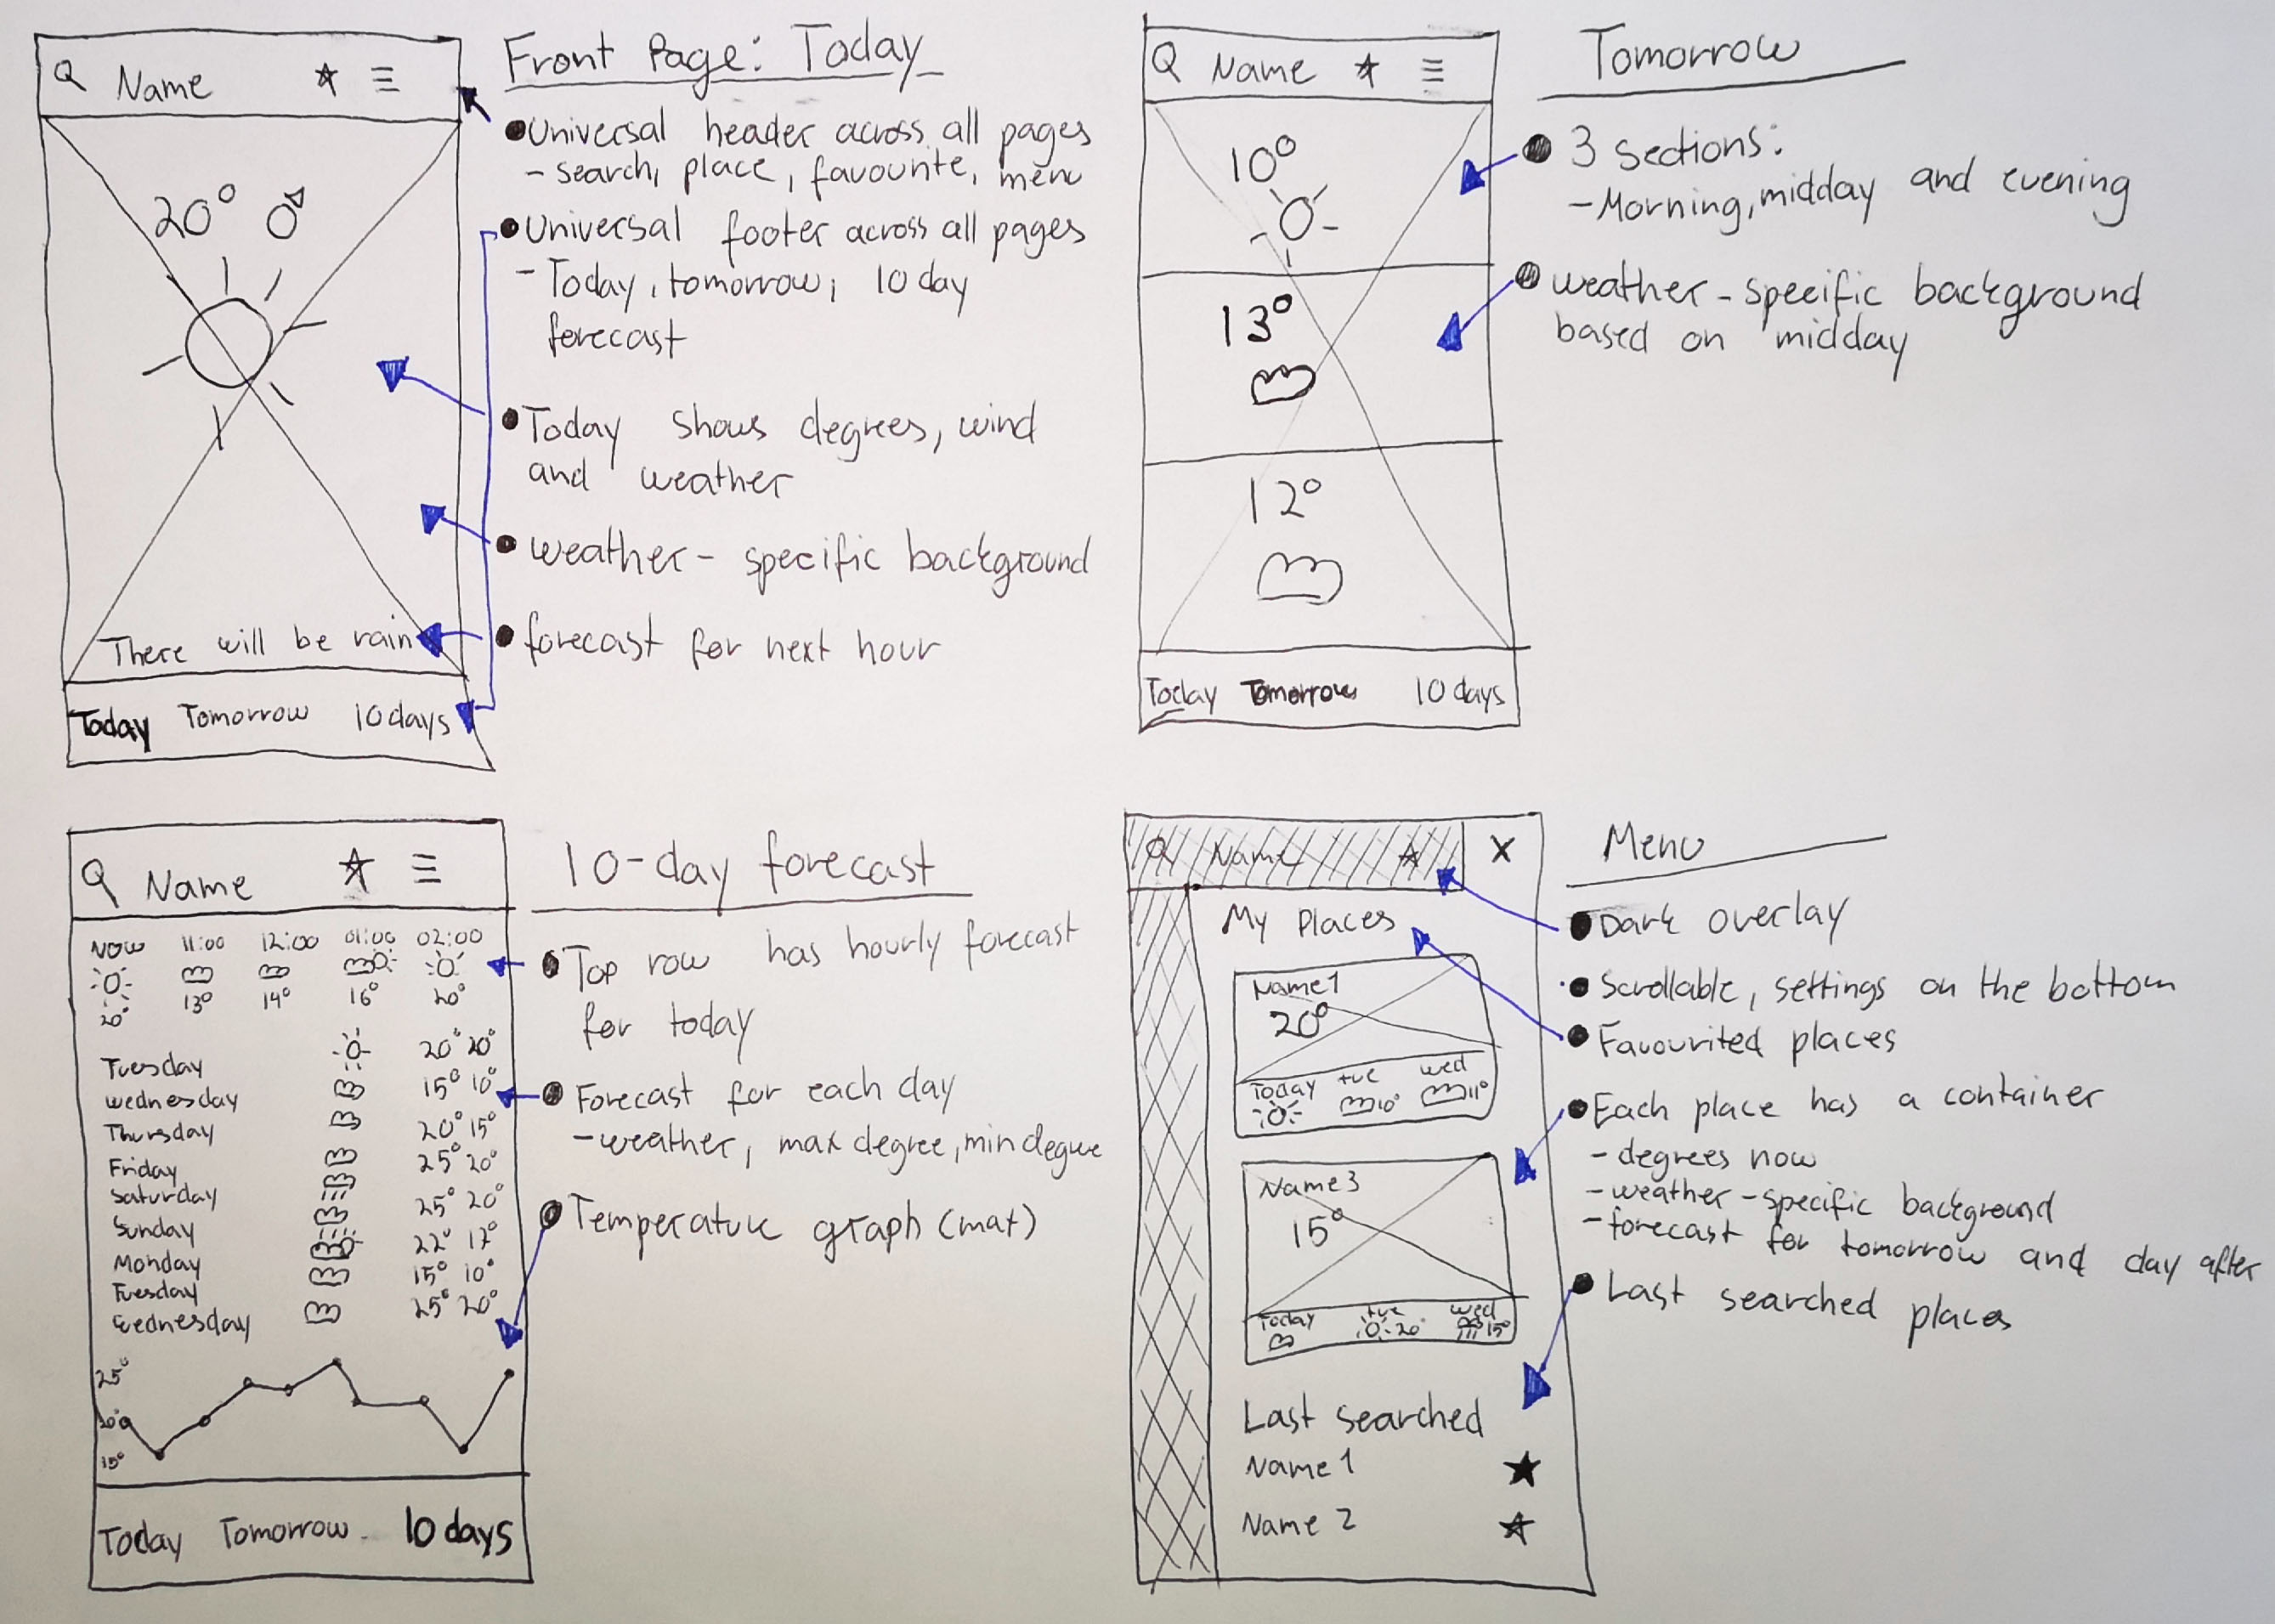 Q Name
20°
There will be rain
Today Tomorrow 10 days
Front Page: Today
Universal header across all pages
- search, place, favourite, menu
Universal footer across all pages
- Today, tomorrow, 10 day
forecast
Today shows degrees, wind
and weather
weather-specific background
forecast for next hour
Name
10°
13°
12°
Today Tomorrow 10 days
Tomorrow
3 sections:
- Morning, midday and evening
weather-specific background
based on midday
Name
NOW 11:00 12:00 01:00 02:00
20° 13° 14° 16° 20°
Tuesday 20° 20°
Wednesday 15° 10°
Thursday 20° 15°
Friday 25° 20°
Saturday 25° 20°
Sunday 22° 17°
Monday 15° 10°
Tuesday 25° 20°
Wednesday
25°
20°
15°
Today Tomorrow 10 days
10-day forecast
Top row has hourly forecast
for today
Forecast for each day
- weather, max degree, min degree
Temperature graph (max)
Name X
My Places
Name1
20°
Today tue wed
10° 11°
Name3
15°
Today tue wed
20° 15°
Last searched
Name 1
Name 2
Menu
Dark overlay
Scrollable, settings on the bottom
Favourited places
Each place has a container
- degrees now
- weather-specific background
- forecast for tomorrow and day after
Last searched places